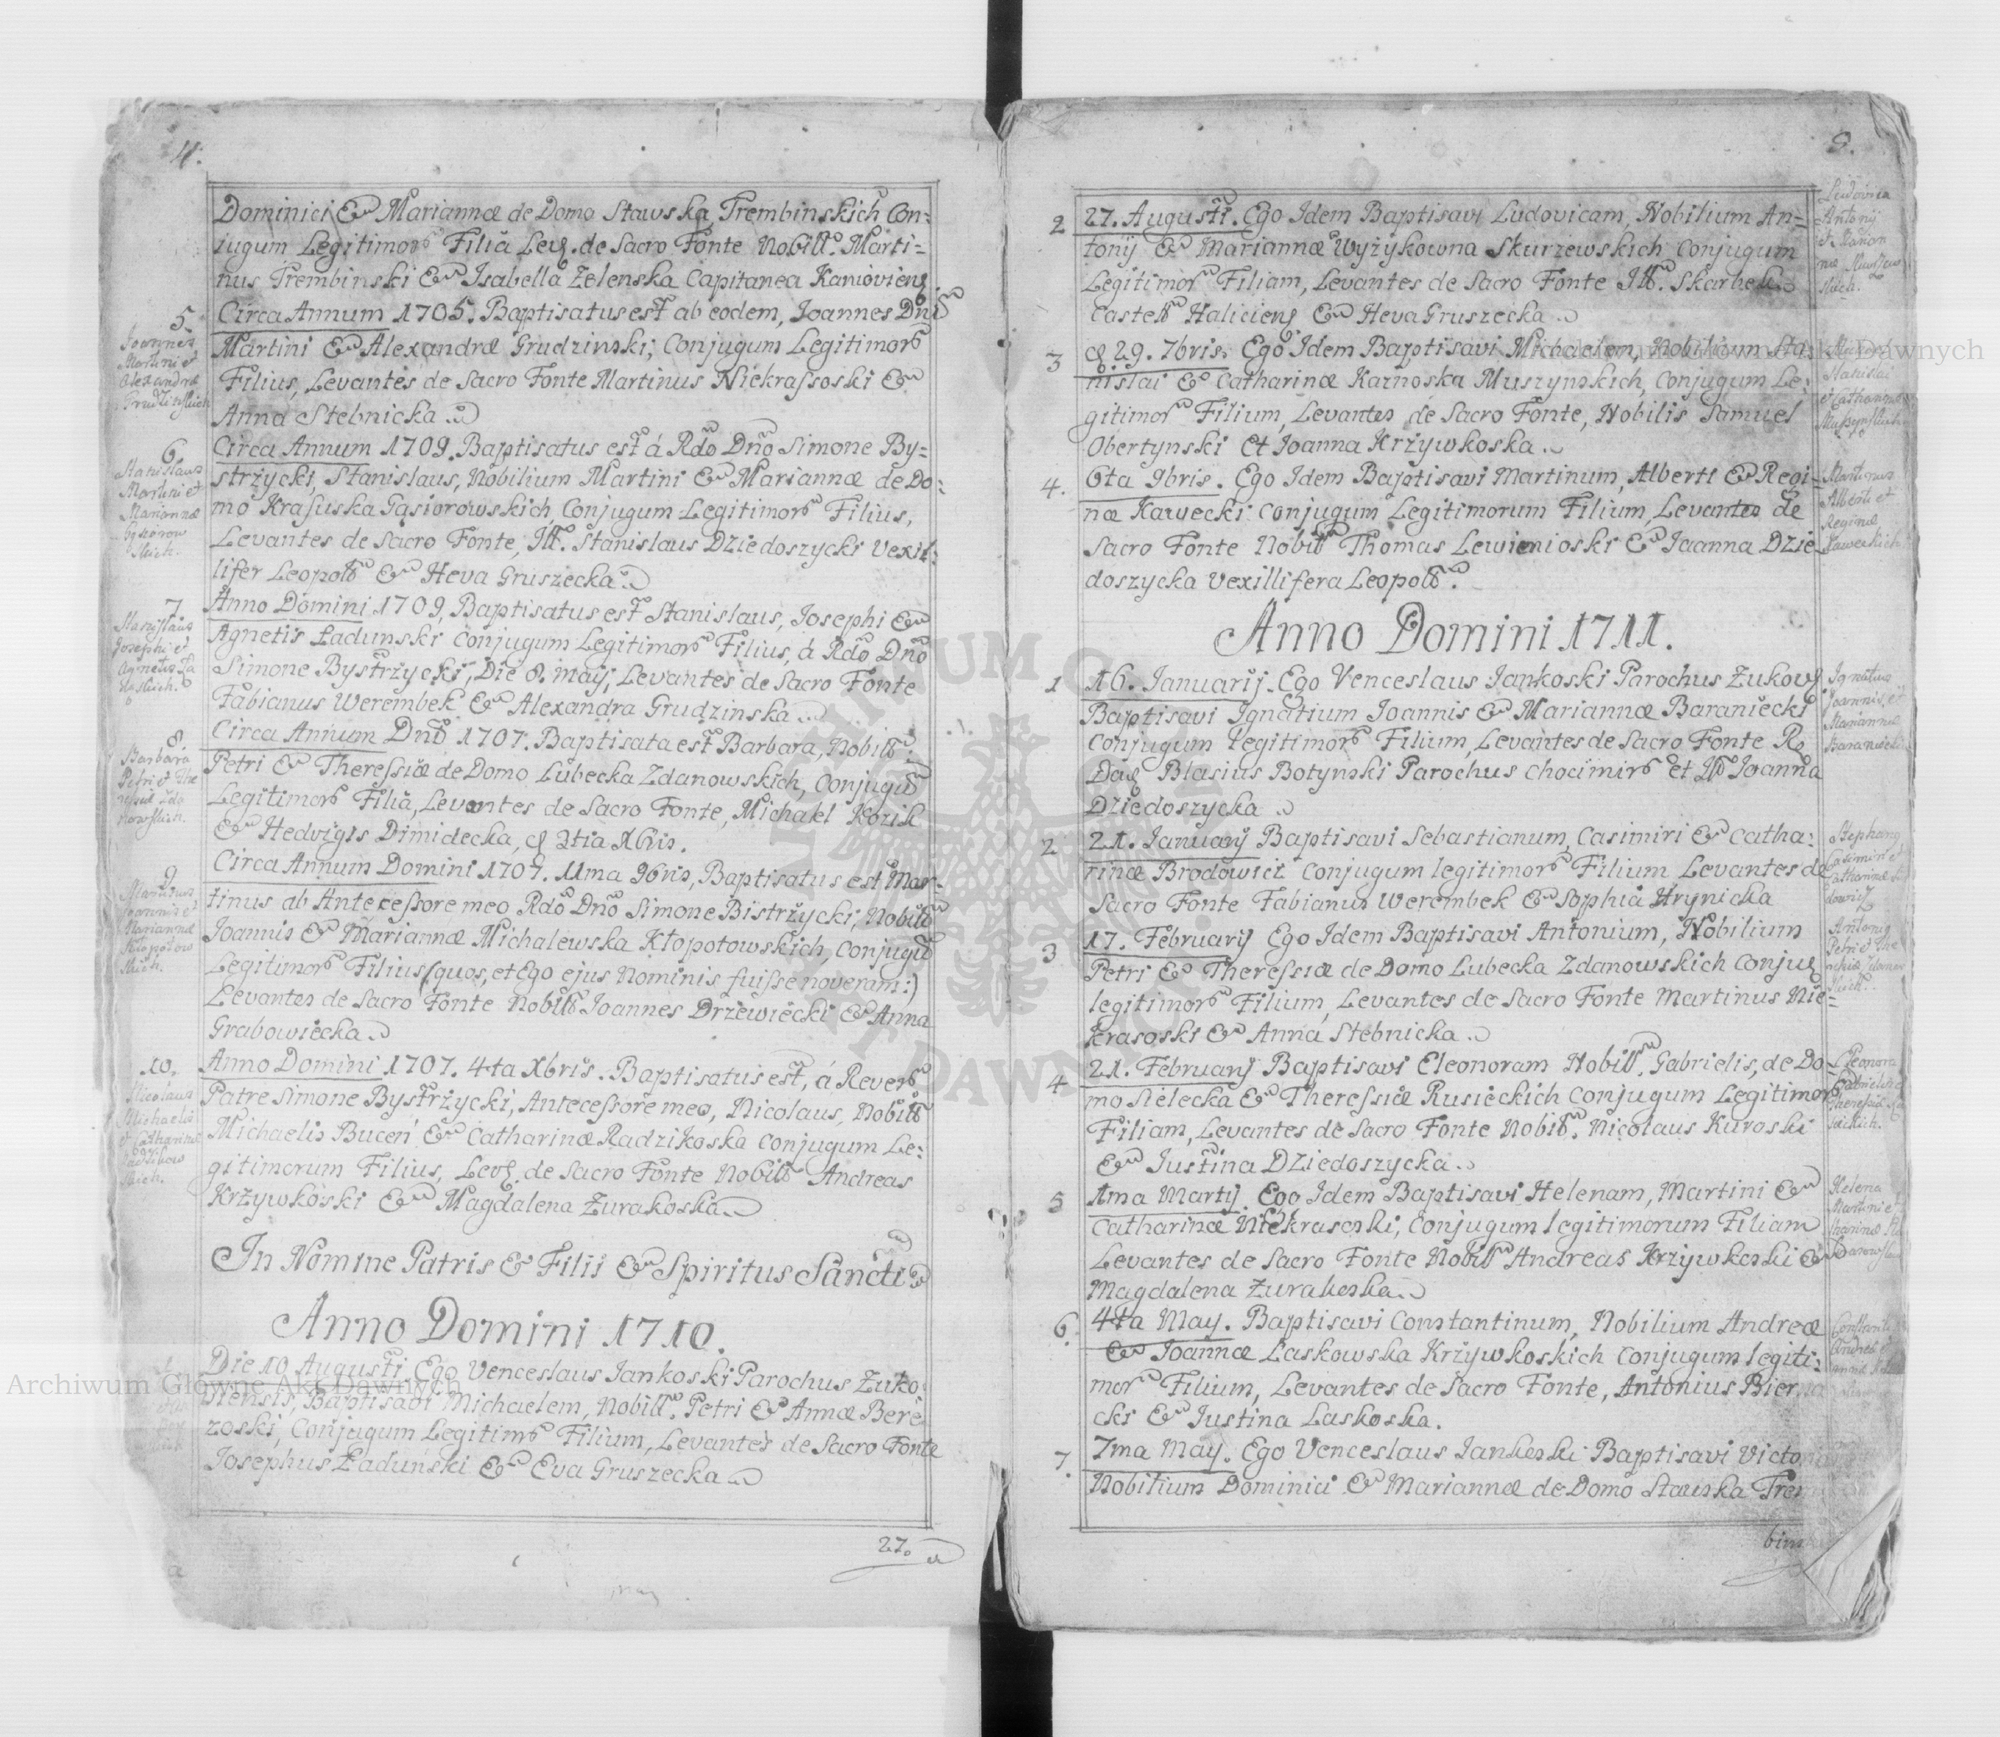 4.
Dominici & Mariannæ de Domo Stawska Trembinskich Con:
iugum Legitimor Filiã Lev. de Sacro Fonte Nobill. Marti=
nus Trembinski & Isabella Zelenska Capitanea Kanioviens.
5.
Circa Annum 1705. Baptisatus est ab eodem, Joannes Dni
Martini & Alexandræ Grudzinski, Conjugum Legitimor
Filius, Levantes de Sacro Fonte Martinus Niekrassoski &
Anna Stebnicka.
Joannes
Martini et
Alexandræ
Grudzinskich
6.
Circa Annum 1709. Baptisatus est á Rdo Dño Simone By=
strżycki, Stanislaus, Nobilium Martini & Mariannæ de Do:
mo Krasuska Gąsiorowskich Conjugum Legitimor Filius,
Levantes de Sacro Fonte, Ill. Stanislaus Dziedoszycki Vexil:
lifer Leopoll & Heva Gruszecka.
Stanislaus
Martini et
Mariannæ
Gąsiorow
skich.
7.
Anno Domini 1709, Baptisatus est Stanislaus, Josephi &
Agnetis Ładunski Conjugum Legitimor Filius, á Rdo Dño
Simone Bystrżycki, Die 8. May, Levantes de Sacro Fonte
Fabianus Werembek & Alexandra Grudzinska.
Stanislaus
Josephi et
Agnetis Ła
8.
Circa Annum Dñi 1707. Baptisata est Barbara, Nobill.
Petri & Theressiæ de Domo Lubecka Zdanowskich, Conjugũ
Legitimor Filiã, Levantes de Sacro Fonte, Michael Kozik
& Hedvigis Dimidecka, d 3tia Xbris.
Barbara
Petri et The
ressiæ Zda
nowskich.
9.
Circa Annum Domini 1707. 11ma 9bris, Baptisatus est Mar=
tinus ab Antecessore meo Rdo Dño Simone Bistrżycki, Nobill
Joannis & Mariannæ Michalewska Kłopotowskich, Conjugũ
Legitimor Filius (quos, et Ego ejus Nominis fuisse noveram:)
Levantes de Sacro Fonte Nobill Joannes Drżewiecki & Anna
Grabowiecka.
Martinus
Joannis et
Mariannæ
Kłopotow
skich.
10.
Anno Domini 1707. 4ta Xbris. Baptisatus est, á Rever
Patre Simone Bystrżycki, Antecessore meo, Nicolaus, Nobill
Michaelis Buceń & Catharinæ Radzikoska Conjugum Le:
gitimorum Filius, Lev. de Sacro Fonte Nobill Andreas
Krżywkoski & Magdalena Żurakoska.
Nicolaus
Michaelis
et Catharinæ
In Nomine Patris & Filii & Spiritus Sancti
Anno Domini 1710.
Die 10 Augusti Ego Venceslaus Jankoski Parochus Żuko:
viensis, Baptisavi Michaelem, Nobill. Petri & Annæ Bere=
zoski, Conjugum Legitim Filium, Levantes de Sacro Fonte
Josephus Ładuński & Eva Gruszecka
27.
2
27. Augusti. Ego Idem Baptisavi Ludovicam, Nobilium An=
tonij & Mariannæ Wyżykowna Skurzewskich Conjugum
Legitimor Filiam, Levantes de Sacro Fonte Ill. Skarbek
Castell Haliciens & Heva Gruszecka.
Ludovica
Antonij
et Marian
næ Skurzew
skich.
3
d 29. 7bris. Ego Idem Baptisavi Michaelem, Nobilium Sta:
nislai & Catharinæ Karnoska Muszynskich, Conjugum Le:
gitimor Filium, Levantes de Sacro Fonte, Nobilis Samuel
Obertynski et Joanna Krżywkoska.
Stanislai
et Catharinæ
Muszynskich
4.
6ta 9bris. Ego Idem Baptisavi Martinum, Alberti & Regi=
næ Kawecki Conjugum Legitimorum Filium, Levantes de
Sacro Fonte Nobill Thomas Lewienioski & Joanna Dzie=
doszycka Vexillifera Leopoll.
Martinus
Alberti et
Reginæ
Kaweckich
Anno Domini 1711.
1
16. Januarij. Ego Venceslaus Jankoski Parochus Żukov
Baptisavi Ignatium Joannis & Mariannæ Baraniecki
Conjugum legitimor Filium, Levantes de Sacro Fonte R
Blasius Botynski Parochus Chocimir et Ill Joanna
Dziedoszycka
Ignatius
Joannis et
Mariannæ
Baraniecki
2
21. Januarij Baptisavi Sebastianum, Casimiri & Catha:
rinæ Brodowicz Conjugum legitimor Filium Levantes de
Sacro Fonte Fabianus Werembek & Sophia Hrynicka
Casimiri et
Catharinæ
3
17. February Ego Idem Baptisavi Antonium, Nobilium
Petri & Theressiæ de Domo Lubecka Zdanowskich Conjug
legitimor Filium, Levantes de Sacro Fonte Martinus Nie=
krasoski & Anna Stebnicka.
Petri et The
4
21. February Baptisavi Eleonoram Nobill. Gabrielis, de Do=
mo Sielecka & Theressiæ Rusieckich Conjugum Legitimor
Filiam, Levantes de Sacro Fonte Nobill. Nicolaus Kuroski
& Justina Dziedoszycka.
Eleonora
Gabrielis
5
1ma Martij. Ego Idem Baptisavi Helenam, Martini &
Catharinæ Niekrasoski, Conjugum legitimorum Filiam
Levantes de Sacro Fonte Nobill Andreas Krżywkoski &
Magdalena Żurakoska.
Helena
Martini et
6.
4ta May. Baptisavi Constantinum, Nobilium Andreæ
& Joannæ Laskowska Krżywkoskich Conjugum legiti:
mor Filium, Levantes de Sacro Fonte, Antonius Bierna
cki & Justina Laskoska.
7.
7ma May. Ego Venceslaus Jankoski Baptisavi
Nobilium Dominici & Mariannæ de Domo Stawska
Archiwum Główne Akt Dawnych